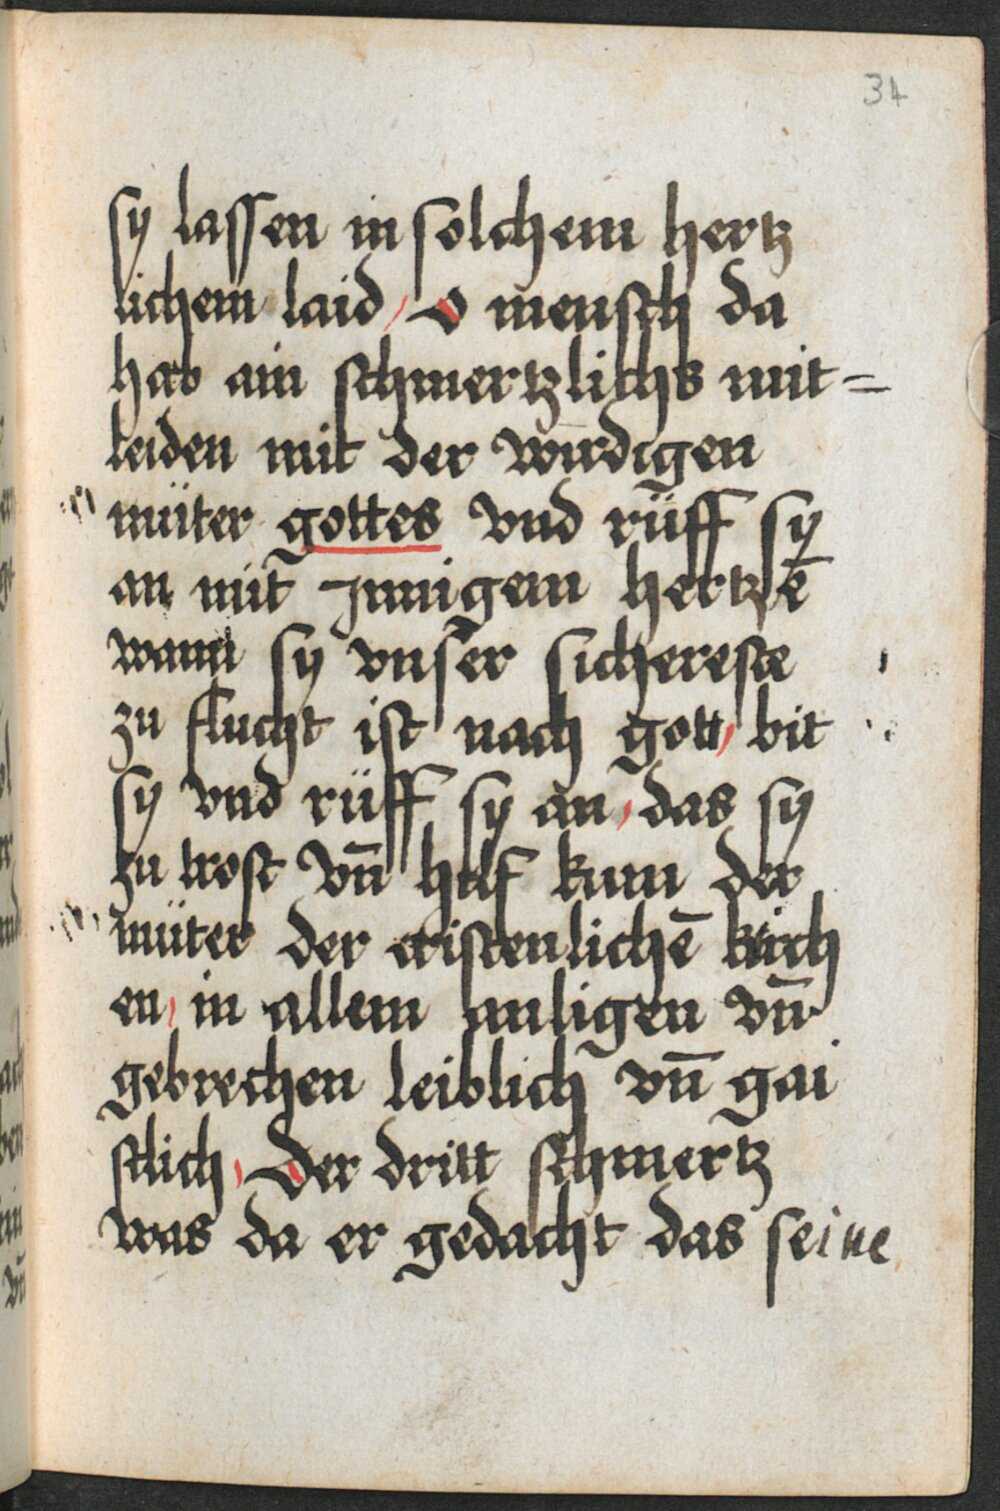 34
sÿ lassen in solchem hertz
lichem laid / O mensch da
hab ain schmertzlichs mit=
leiden mit der wirdigen
müter gottes vnd rüff sÿ
an mit Jnnigem hertzē
wann sÿ vnser sichereste
zu flucht ist nach gott / bit
sÿ vnd rüff sÿ an / das sÿ
zu trost vn̄ hilf kum der
müter der cristenlichē kirch
en / in allem anligen vn̄
gebrechen leiblich vn̄ gai
stlich / Der dritt schmertz
was da er gedacht das seine